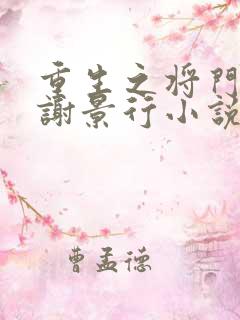 重生之将門
謝景行小説
曹孟德